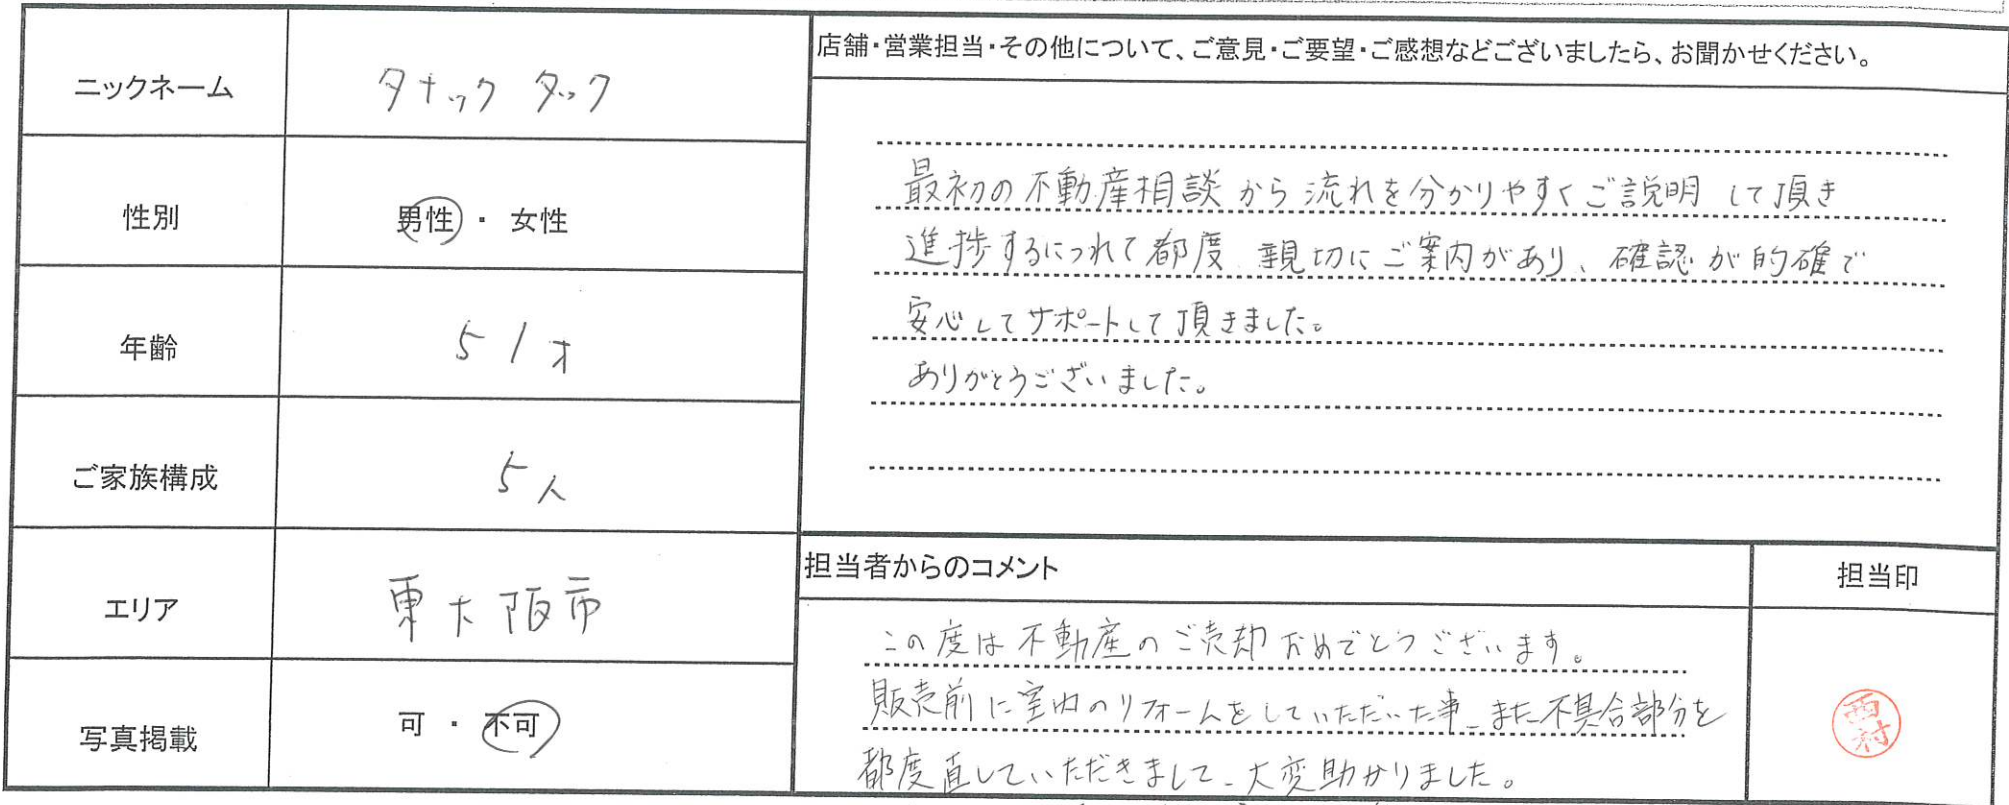 ニックネーム
タナック タック
性別
男性 ・ 女性
年齢
51才
ご家族構成
5人
エリア
東大阪市
写真掲載
可 ・ 不可
店舗・営業担当・その他について、ご意見・ご要望・ご感想などございましたら、お聞かせください。
最初の不動産相談から流れを分かりやすくご説明して頂き
進捗するにつれて都度、親切にご案内があり、確認が的確で
安心してサポートして頂きました。
ありがとうございました。
担当者からのコメント
この度は不動産のご売却おめでとうございます。
販売前に室内のリフォームをしていただいた事、また不具合部分を
都度直していただきまして、大変助かりました。
担当印
西村